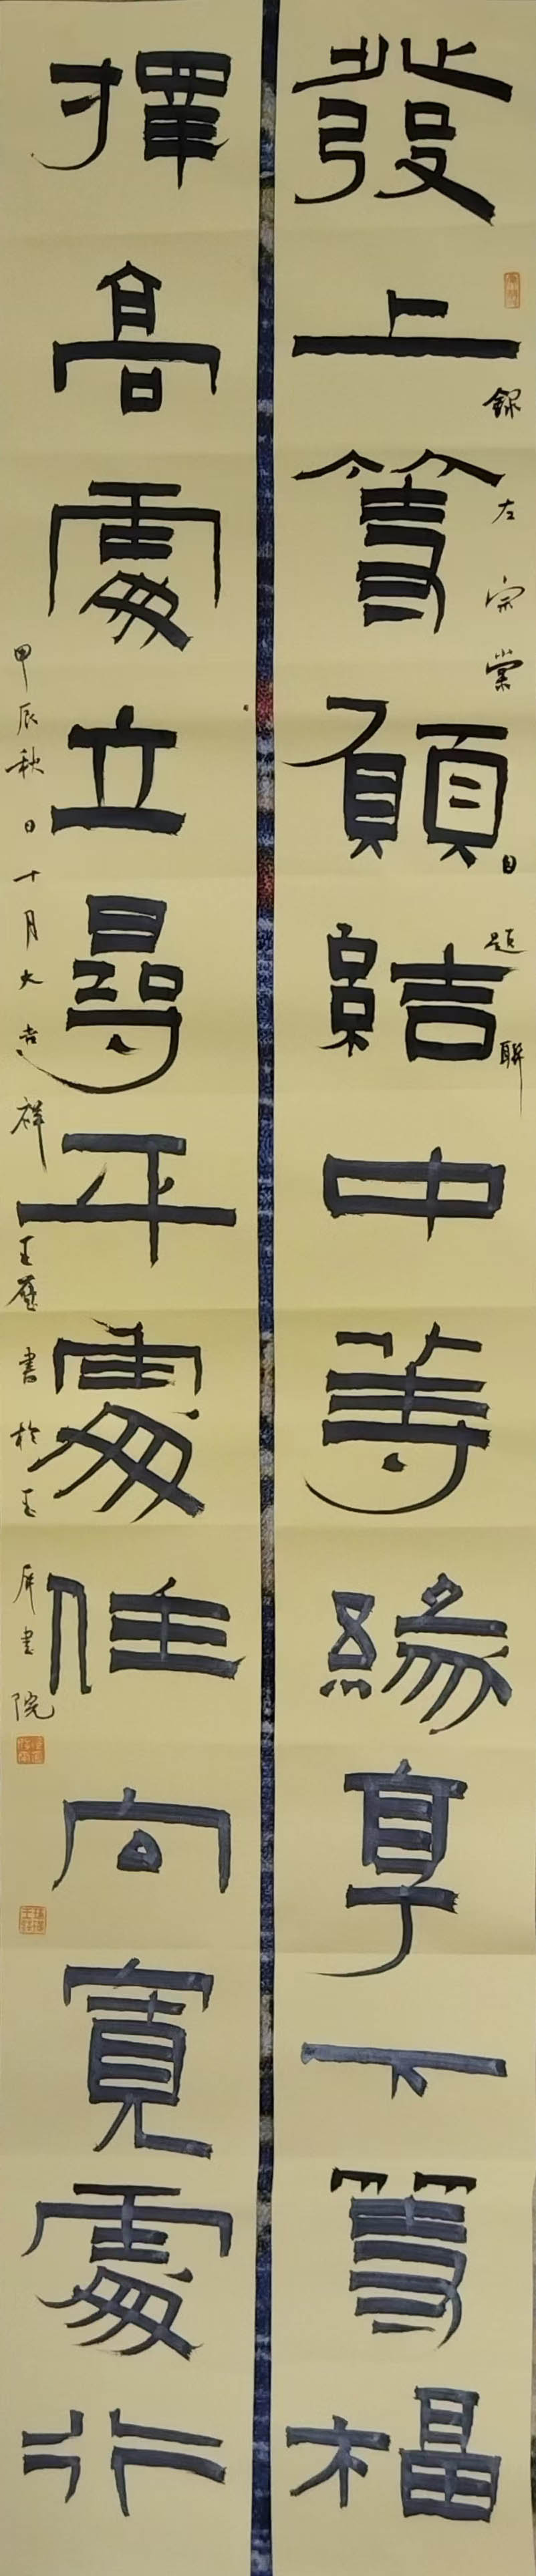 發上等願結中等緣享下等福
錄左宗棠自題聯
擇高處立尋平處住向寬處行
甲辰秋日十月大吉祥玉應書於玉屏書院